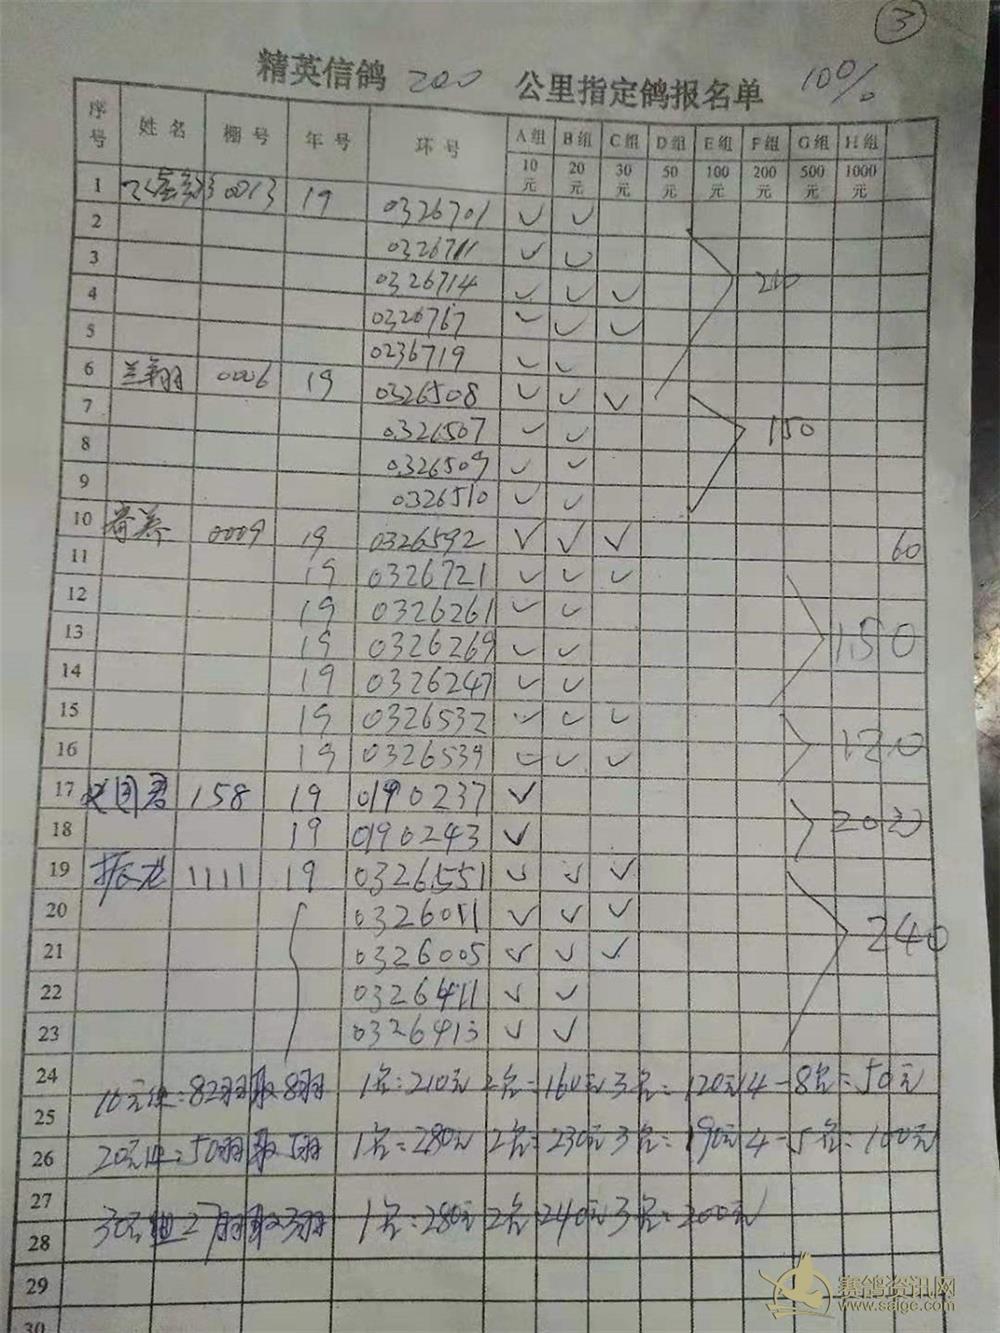 ③
精英信鸽 200 公里指定鸽报名单 10%
序号 姓名 棚号 年号 环号 A组 B组 C组 D组 E组 F组 G组 H组
10元 20元 30元 50元 100元 200元 500元 1000元
1 0013 19 0326701 ✓ ✓
2 0326711 ✓ ✓
3 0326714 ✓ ✓ ✓ 210
4 0326767 ✓ ✓ ✓
5 0236719 ✓ ✓
6 兰翔 0006 19 0326508 ✓ ✓ ✓
7 0326507 ✓ ✓ 150
8 0326509 ✓ ✓
9 0326510 ✓ ✓
10 0009 19 0326592 ✓ ✓ ✓ 60
11 19 0326721 ✓ ✓ ✓
12 19 0326261 ✓ ✓
13 19 0326269 ✓ ✓ 150
14 19 0326247 ✓ ✓
15 19 0326532 ✓ ✓ ✓
16 19 0326539 ✓ ✓ ✓ 120
17 国君 158 19 0190237 ✓
18 19 0190243 ✓ 20
19 振龙 1111 19 0326551 ✓ ✓ ✓
20 0326011 ✓ ✓ ✓
21 0326005 ✓ ✓ ✓ 240
22 0326411 ✓ ✓
23 0326413 ✓ ✓
24
10元组:82羽取8羽 1名:210元 2名=160元 3名=120元 4-8名=50元
25
26
20元组:50羽取5羽 1名=280元 2名=230元 3名=190元 4-5名=100元
27
30元组27羽取3羽 1名:280元 2名240元 3名=200元
28
29
30
赛鸽资讯网
www.saige.com